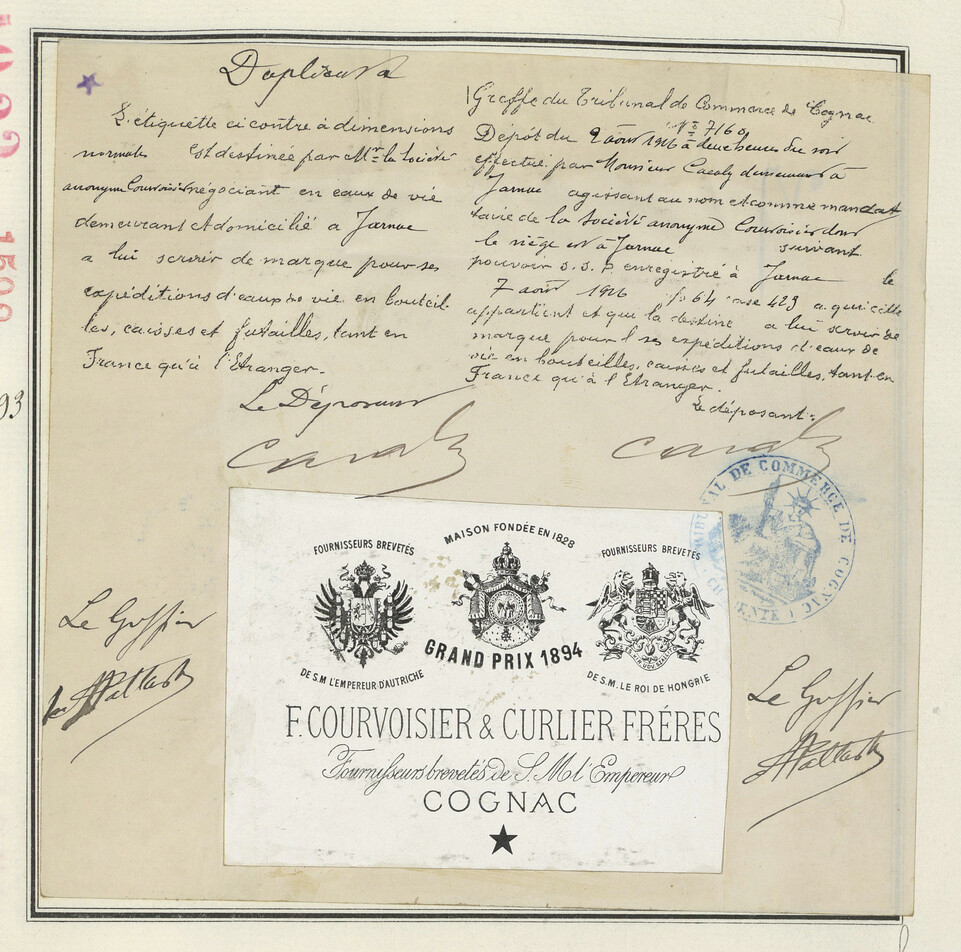 Duplicata
L'étiquette ci contre à dimensions
normales est destinée par Mr. la Société
anonyme Courvoisier négociant en eaux de vie
demeurant et domicilié a Jarnac
a lui servir de marque pour ses
expéditions d'eaux de vie en bouteil-
les, caisses et futailles, tant en
France qu'à l'Etranger.
Le Déposant
Greffe du Tribunal de Commerce de Cognac
No 7160
Dépôt du 9 août 1926 à deux heures du soir
effectué par Monsieur demeurant à
Jarnac agissant au nom et comme mandat
taire de la Société anonyme Courvoisier dont
le siège est à Jarnac suivant
pouvoir S.S.P. enregistré à Jarnac le
7 août 1926 fo 64 case 429 a qui elle
appartient et qui la destine a lui servir de
marque pour ses expéditions d'eaux de
vie en bouteilles, caisses et futailles, tant en
France qu'à l'Etranger.
Le déposant:
TRIBUNAL DE COMMERCE DE COGNAC
FOURNISSEURS BREVETÉS
MAISON FONDÉE EN 1828
FOURNISSEURS BREVETÉS
GRAND PRIX 1894
DE S.M L'EMPEREUR D'AUTRICHE
DE S.M. LE ROI DE HONGRIE
F. COURVOISIER & CURLIER FRÉRES
Fournisseurs brevetés de S.M l'Empereur
COGNAC
Le Greffier
Le Greffier
93